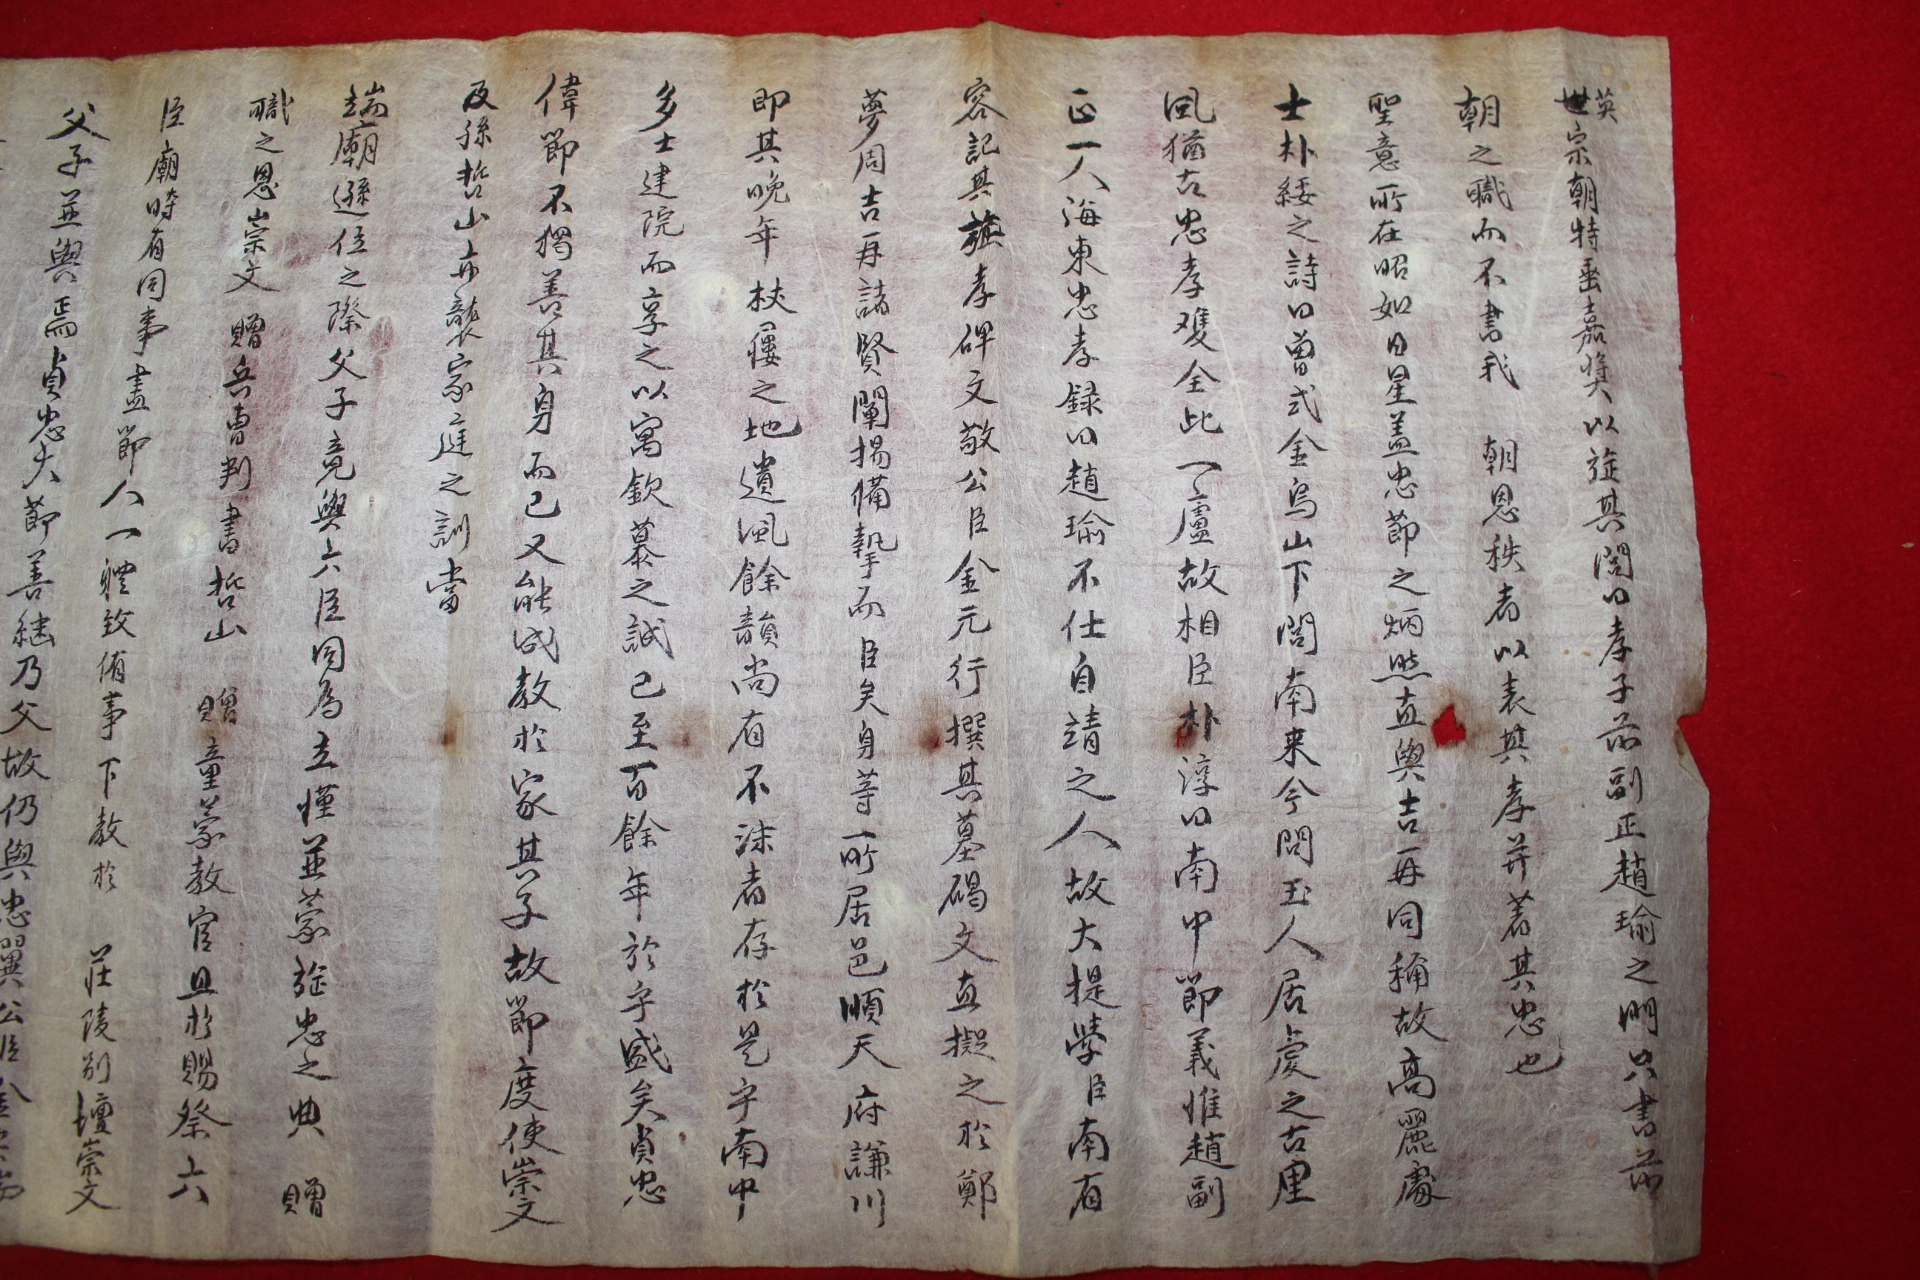 英
世宗朝特垂嘉奬以旌其閭曰孝子前副正趙瑜之門只書前
朝之職而不書我 朝恩秩者以表其孝幷著其忠也
聖意所在昭如日星盖忠節之炳然直與吉再同稱故高麗處
士朴綏之詩曰曾式金烏山下閭南来今問玉人居處之古里
風猶古忠孝双全此一廬故相臣朴淳曰南中節義惟趙副
正一人海東忠孝錄曰趙瑜不仕自靖之人故大提學臣南有
容記其旌孝碑文敬公臣金元行撰其墓碣文直擬之於鄭
夢周吉再諸賢闡揚備摯而臣矣身等所居邑順天府謙川
即其晩年杖屨之地遺風餘韻尚有不沫者存於是乎南中
多士建院而享之以寓欽慕之誠已至百餘年於乎盛矣貞忠
偉節不獨善其身而已又能成教於家其子故節度使崇文
及孫哲山亦襲家庭之訓當
端廟遜位之際父子竟與六臣同爲立慬並蒙旌忠之典 贈
職之恩崇文 贈兵曹判書哲山 贈童蒙教官且於賜祭六
臣廟時有同事盡節人一軆致侑事下教於 莊陵別壇崇文
父子並與焉貞忠大節善継乃父故仍與忠翼公臣金宗瑞